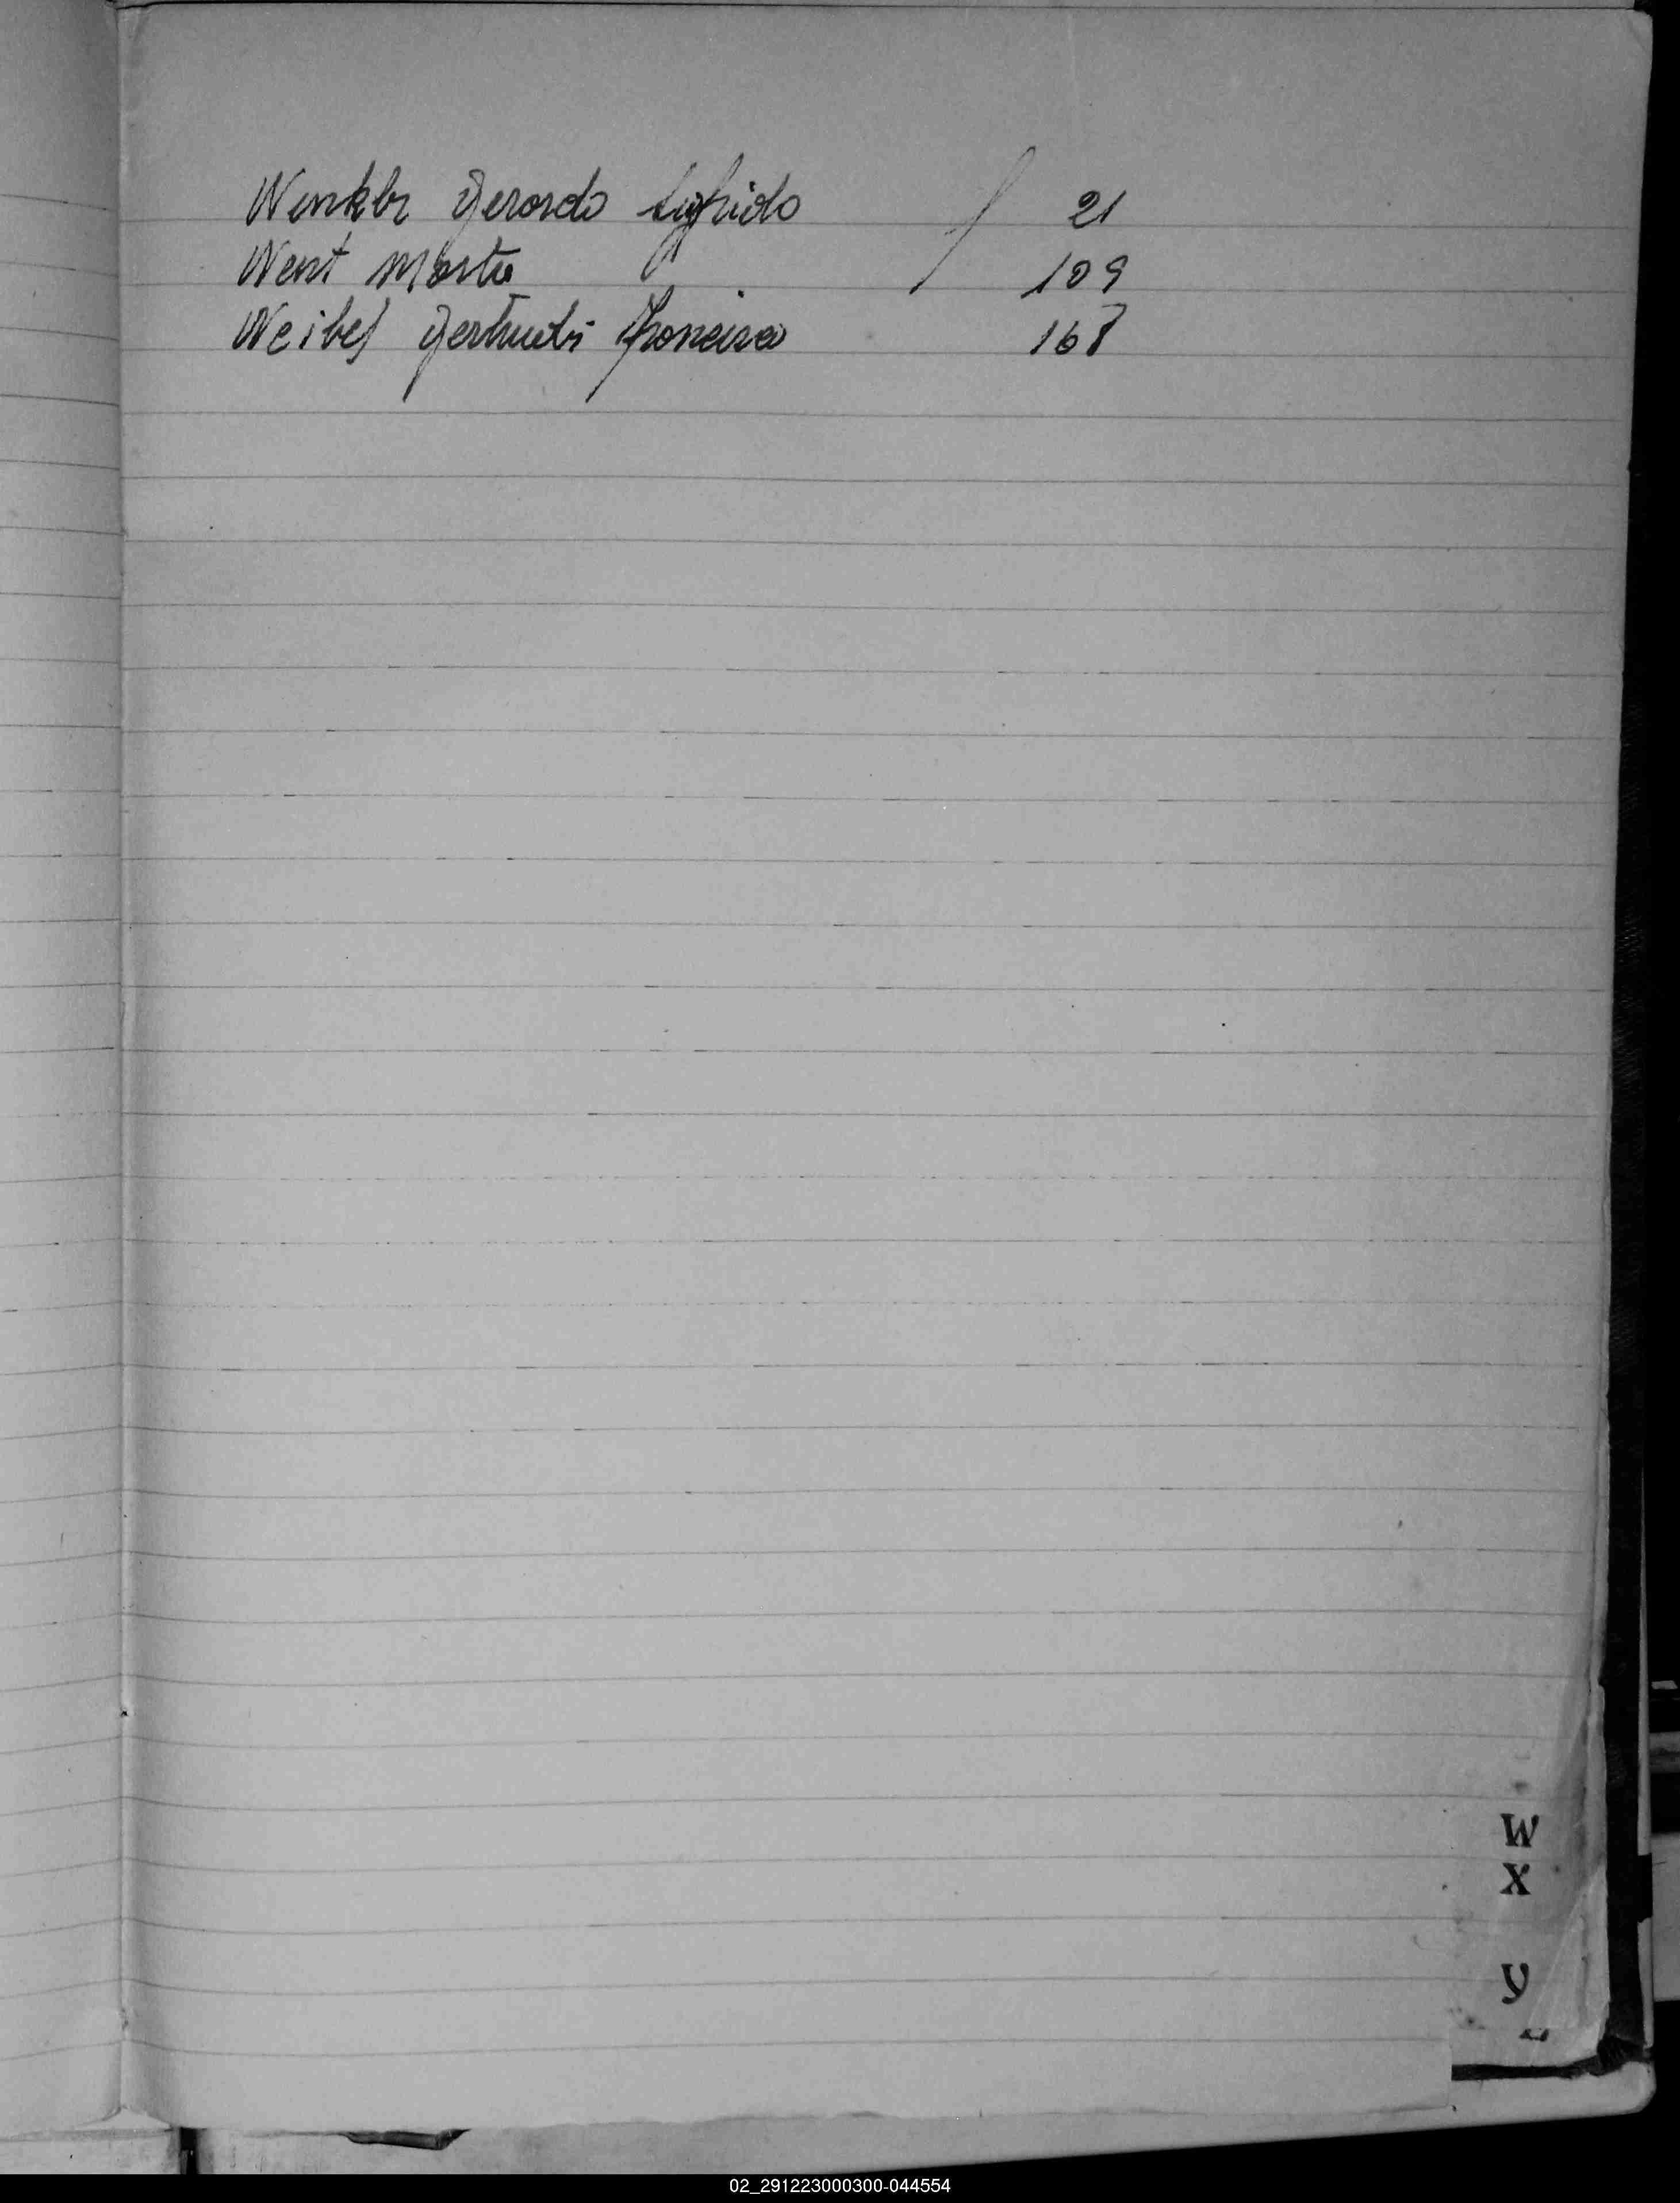 Winkler Gerardo Sigfrido 21
Went Marta 109
Weibel Gertrudis Francisca 168
W
X
Y
Z
02_291223000300-044554